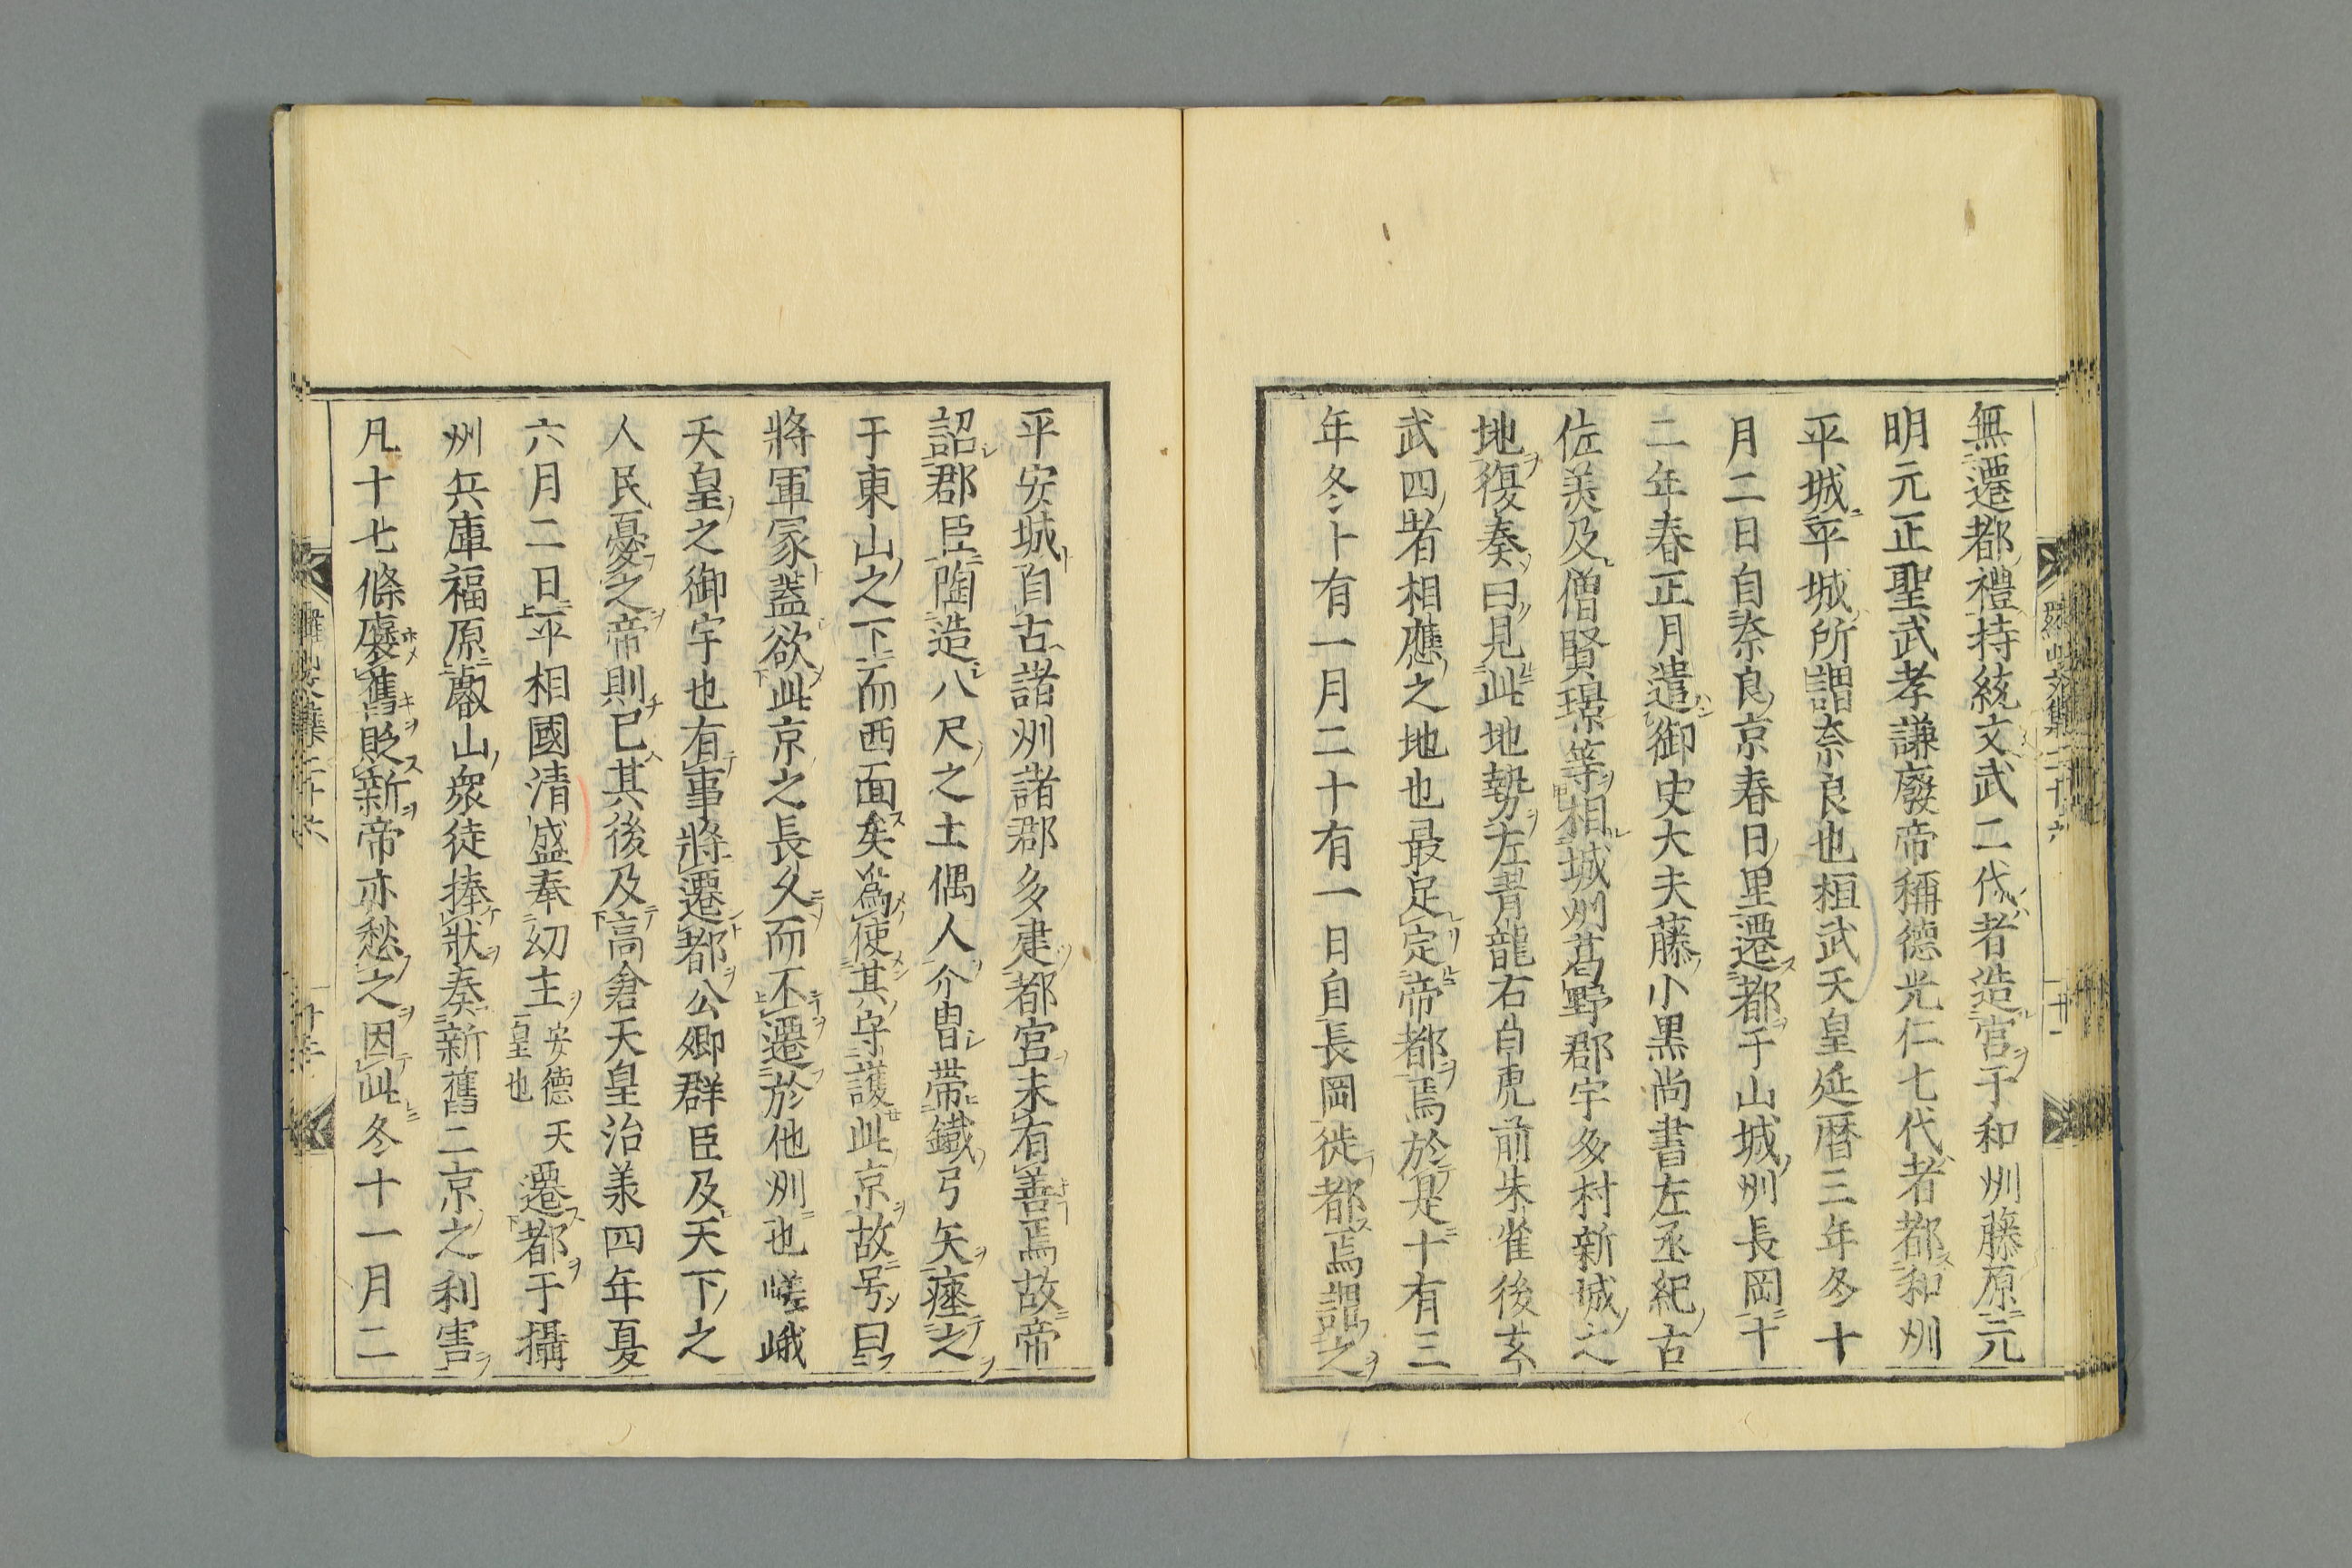 無遷都禮持統文武二代者造宮于和州藤原元
明元正聖武孝謙廢帝稱德光仁七代者都和州
平城平城所謂奈良也桓武天皇延暦三年冬十
月二日自奈良京春日里遷都于山城州長岡十
二年春正月遣御史大夫藤小黒尚書左丞紀古
佐美及僧賢璟等相城州葛野郡宇多村新城之
地復奏曰見此地勢左青龍右白虎前朱雀後玄
武四者相應之地也最足定帝都焉於是十有三
年冬十有一月二十有一日自長岡徙都焉謂之
平安城自古諸州諸郡多建都宮未有善焉故帝
詔郡臣陶造八尺之土偶人介冑帶鐵弓矢瘞之
于東山之下而西面矣為使其守護此京故号曰
將軍冢蓋欲此京之長久而不遷於他州也嵯峨
天皇之御宇也有事將遷都公卿群臣及天下之
人民憂之帝則已其後及高倉天皇治羕四年夏
六月二日平相國清盛奉幼主安德天皇也遷都于攝
州兵庫福原叡山衆徒捧狀奏新舊二京之利害
凡十七條褒舊貶新帝亦愁之因此冬十一月二